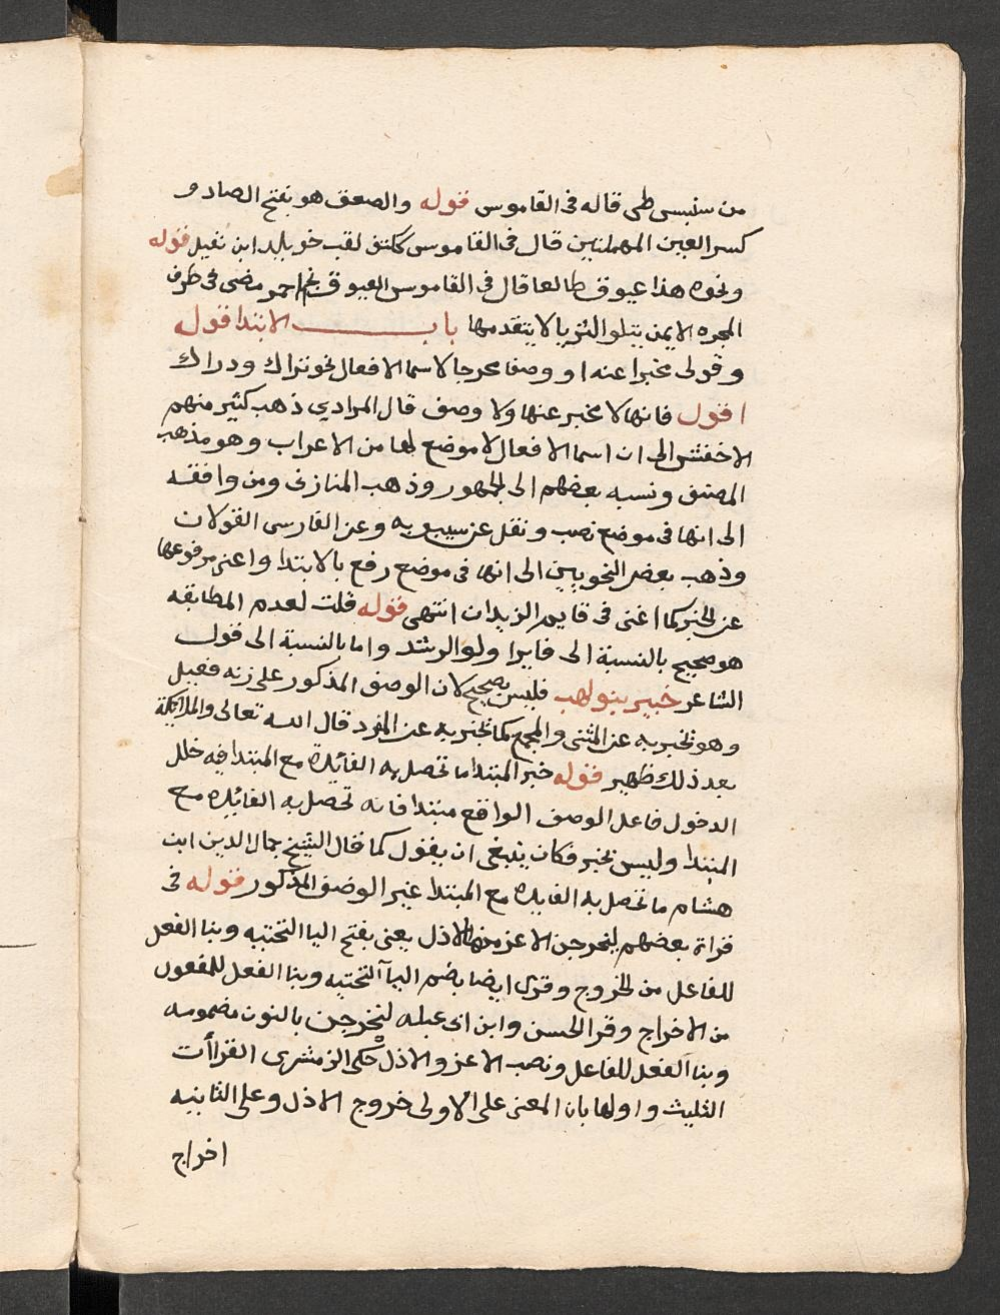 من سنبسى طى قاله فى القاموس قوله والصعق هو بفتح الصاد و
كسر العين المهملتين قال فى القاموس ككتف لقب خويلد ابن نفيل قوله
ونحوه هذا عيوق طالعا قال فى القاموس العيوق نجم احمر مضى فى طرف
المجره الايمن يتلو الثريا لا يتقدمها باب الابتدا قوله
وقولى مخبرا عنه او وصفا مخرجا لاسما الافعال نحو نزاك ودراك
اقول فانها لا مخبر عنها ولا وصف قال المرادى ذهب كثير منهم
الاخفش الى ان اسما الافعال لا موضع لها من الاعراب وهو مذهب
المصنف ونسبه بعضهم الى الجمهور وذهب المنازنى ومن وافقه
الى انها فى موضع نصب ونقل عن سيبويه وعن الفارسى القولان
وذهب بعض النحويين الى انها فى موضع رفع بالابتدا واغنى مرفوعها
عن الخبر كما اغنى فى قايم الزيدان انتهى قوله قلت لعدم المطابقه
هو صحيح بالنسبة الى فايرا ولو الرشد واما بالنسبة الى قول
الشاعر خبير بنو لهب فليس بصحيح لان الوصف المذكور على زنه فعيل
وهو تخبر به عن المثنى والجمع كما تخبر به عن المفرد قال الله تعالى والملائكة
بعد ذلك ظهير قوله خبر المبتدا ما تحصل به الفائدة مع المبتدا فيه خلل
الدخول فاعل الوصف الواقع مبتدا فانه تحصل به الفائده مع
المبتدا وليس بخبر فكان ينبغى ان يقول كما قال الشيخ جمال الدين ابن
هشام ما تحصل به الفايده مع المبتدا غير الوصف المذكور قوله فى
قراة بعضهم ليخرجن الاعز منها الاذل يعنى بفتح اليا التحتيه وبنا الفعل
للفاعل من الخروج وقرى ايضا بضم اليآ التحتيه وبنا الفعل للمفعول
من الاخراج وقرا الحسن وابن ابى عبله لنخرجن بالنون مضمومه
وبنا الفعل للفاعل ونصب الاعز والاذل حكى الزمخشرى القراأت
الثليث واولها بان المعنى على الاولى خروج الاذل وعلى الثانيه
اخراج